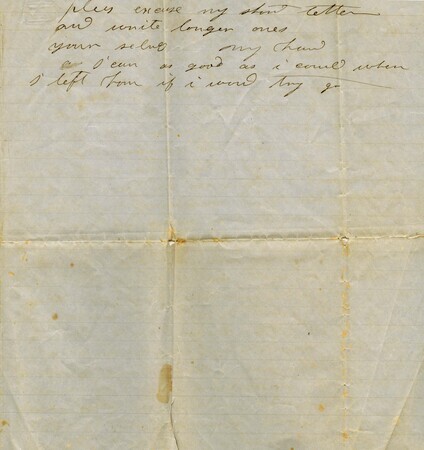 ples excuse my short letter
and write longer ones
your selve my hand
I can as good as i could when
I left hom if i wood try